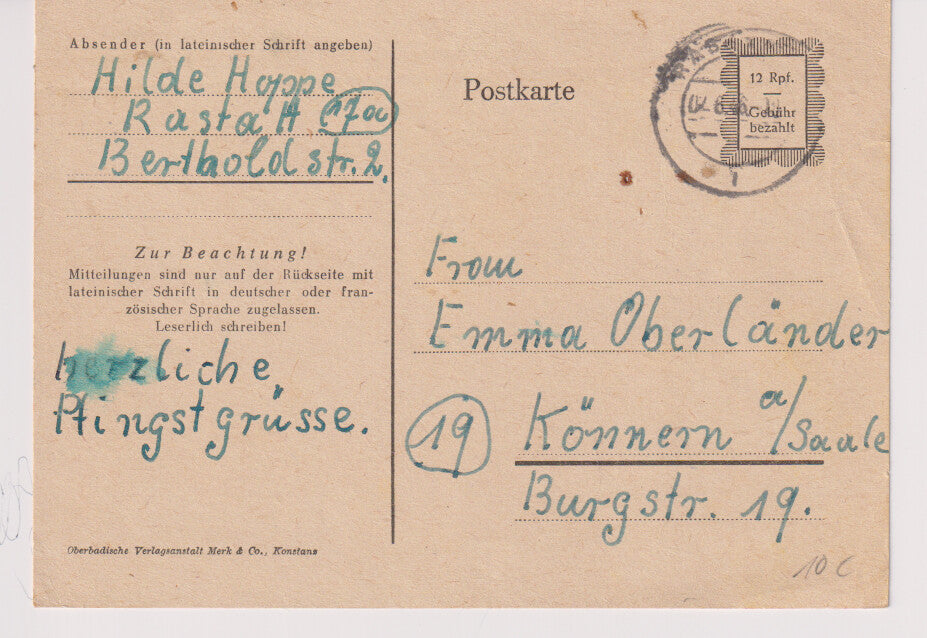 Absender (in lateinischer Schrift angeben)
Hilde Hoppe
Rastatt 17a
Bertholdstr. 2.
Zur Beachtung!
Mitteilungen sind nur auf der Rückseite mit
lateinischer Schrift in deutscher oder fran-
zösischer Sprache zugelassen.
Leserlich schreiben!
herzliche
Pfingstgrüsse.
Oberbadische Verlagsanstalt Merk & Co., Konstanz
Postkarte
12 Rpf.
Gebühr
bezahlt
Frau
Emma Oberländer
19 Könnern a/Saale
Burgstr. 19.
10 C